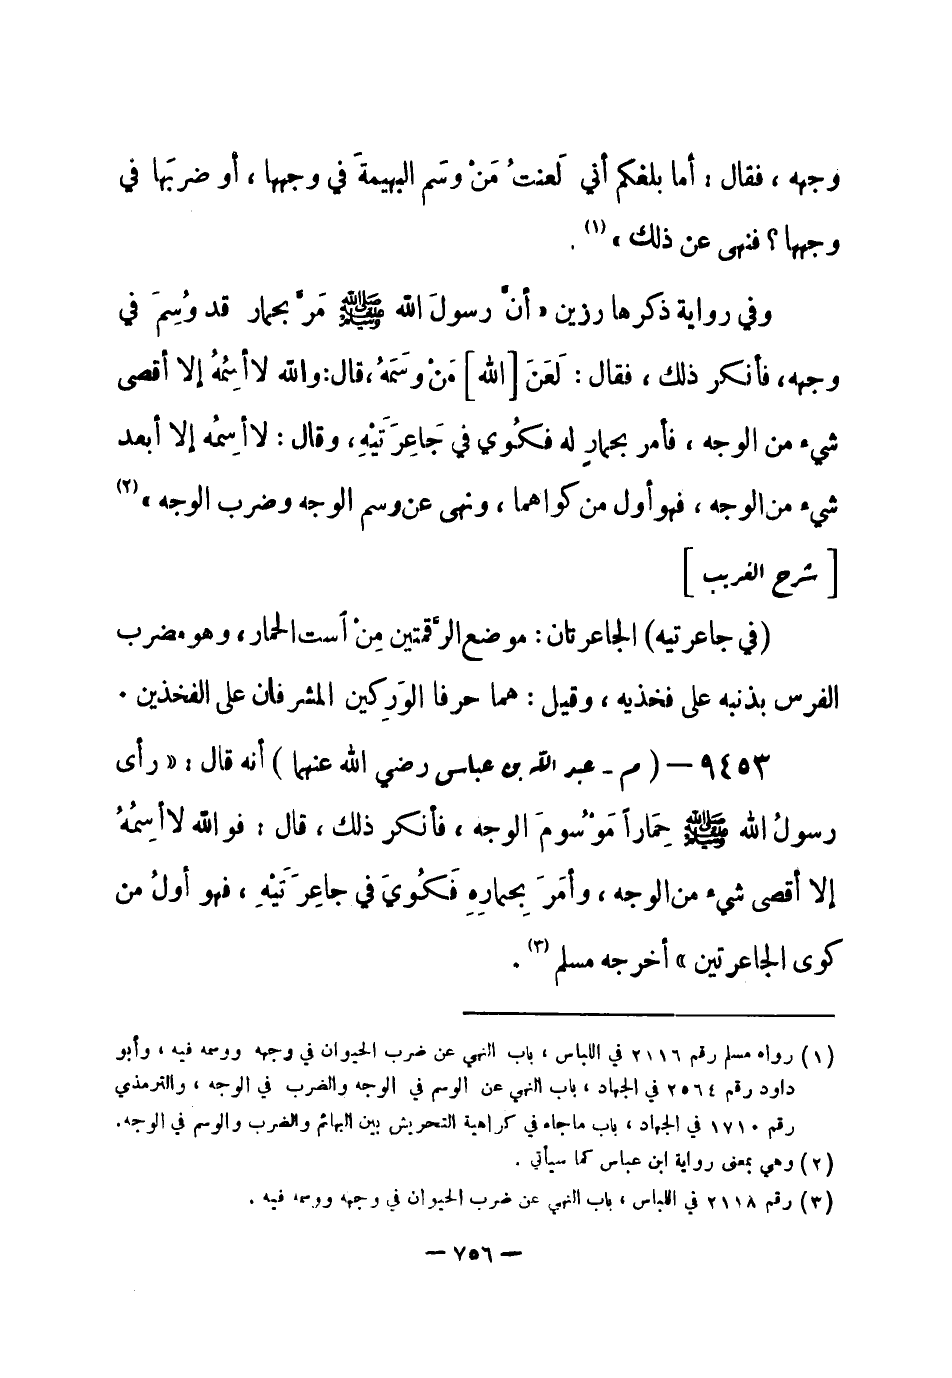 وجهه ، فقال : أما بلغكم أني لَعنتُ مَنْ وسَم البهيمةَ في وجهها ، أو ضربَها في
وجهها ؟ فنهى عن ذلك » (١) .
وفي رواية ذكرها رزين « أنَّ رسولَ الله ﷺ مَرَّ بحمار قد وُسِمَ في
وجهه، فأنكر ذلك ، فقال : لَعَنَ [ الله ] مَنْ وسَمَهُ،قال:والله لا أسِمُهُ إلا أقصى
شيء من الوجه ، فأمر بحمارٍ له فكُوي في جَاعِرَتَيْهِ، وقال : لا أسِمُه إلا أبعد
شيء من الوجه ، فهو أول من كواهما ، ونهى عن وسم الوجه وضرب الوجه » (٢)
[ شرح الغريب ]
(في جاعرتيه) الجاعرتان : موضع الرَّقمتين مِنْ آست الحمار، وهو مضرب
الفرس بذنبه على فخذيه ، وقيل : هما حرفا الوَرِكين المشرفان على الفخذين .
٩٤٥٣ — ( م - عبد الله بن عباس رضي الله عنهما ) أنه قال : « رأى
رسولُ الله ﷺ حِمَاراً مَوْسُومَ الوجه ، فأنكر ذلك ، قال : فوالله لا أسِمُهُ
إلا أقصى شيء من الوجه ، وأمَرَ بِحمارِهِ فَكُويَ في جاعِرَتَيْهِ ، فهو أولُ من
كوى الجاعرتين » أخرجه مسلم (٣) .
(١) رواه مسلم رقم ٢١١٦ في اللباس ، باب النهي عن ضرب الحيوان في وجهه ووسمه فيه ، وأبو
داود رقم ٢٥٦٤ في الجهاد ، باب النهي عن الوسم في الوجه والضرب في الوجه ، والترمذي
رقم ١٧١٠ في الجهاد ، باب ماجاء في كراهية التحريش بين البهائم والضرب والوسم في الوجه.
(٢) وهي بمعنى رواية ابن عباس كما سيأتي .
(٣) رقم ٢١١٨ في اللباس ، باب النهي عن ضرب الحيوان في وجهه ووسمه فيه .
— ٧٥٦ —